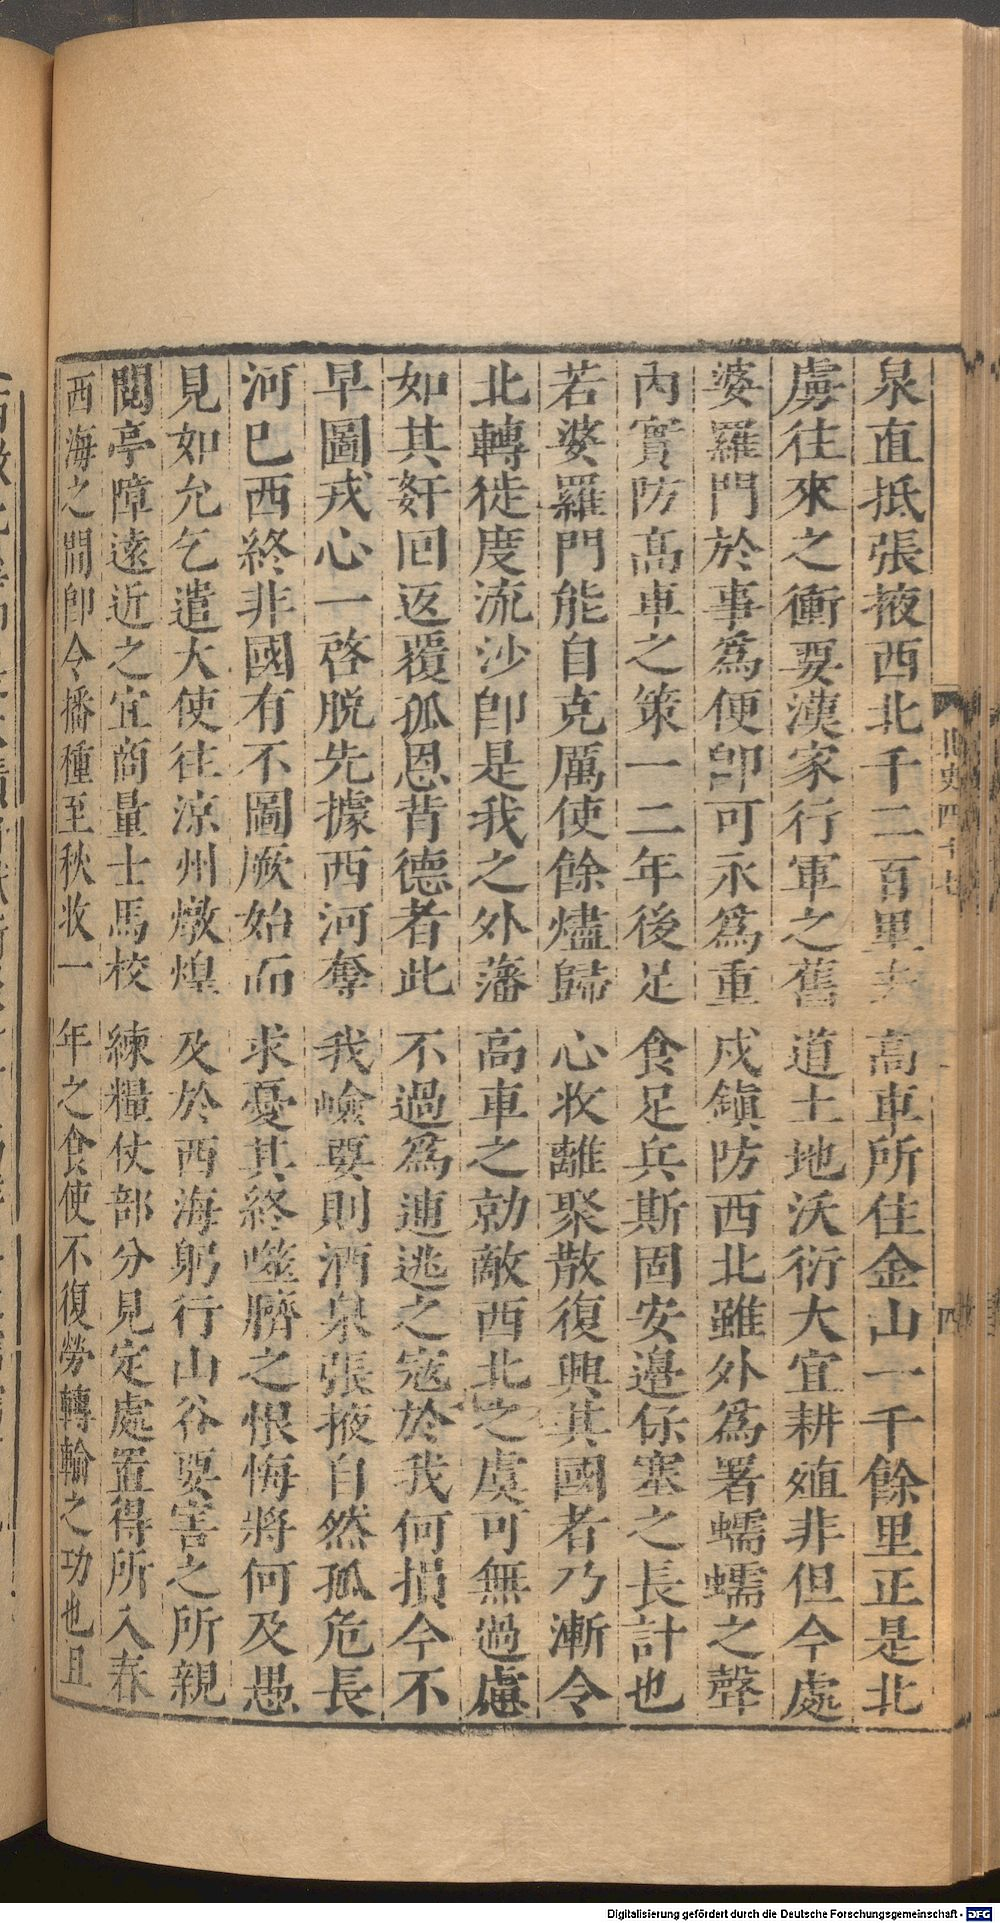 北史四十七
四
泉直抵張掖西北千二百里去高車所住金山一千餘里正是北
虜往來之衝要漢家行軍之舊道土地沃衍大宜耕殖非但今處
婆羅門於事爲便卽可永爲重戍鎭防西北雖外爲署蠕蠕之聲
內實防高車之策一二年後足食足兵斯固安邊保塞之長計也
若婆羅門能自克厲使餘燼歸心收離聚散復興其國者乃漸令
北轉徙度流沙卽是我之外藩高車之勍敵西北之虞可無過慮
如其奸回返覆孤恩背德者此不過爲逋逃之寇於我何損今不
早圖戎心一啓脱先據西河奪我嶮要則酒泉張掖自然孤危長
河已西終非國有不圖厥始而求憂其終噬臍之恨悔將何及愚
見如允乞遣大使往涼州燉煌及於西海躬行山谷要害之所親
閱亭障遠近之宜商量士馬校練糧仗部分見定處置得所入春
西海之間卽令播種至秋收一年之食使不復勞轉輸之功也且
Digitalisierung gefördert durch die Deutsche Forschungsgemeinschaft - DFG